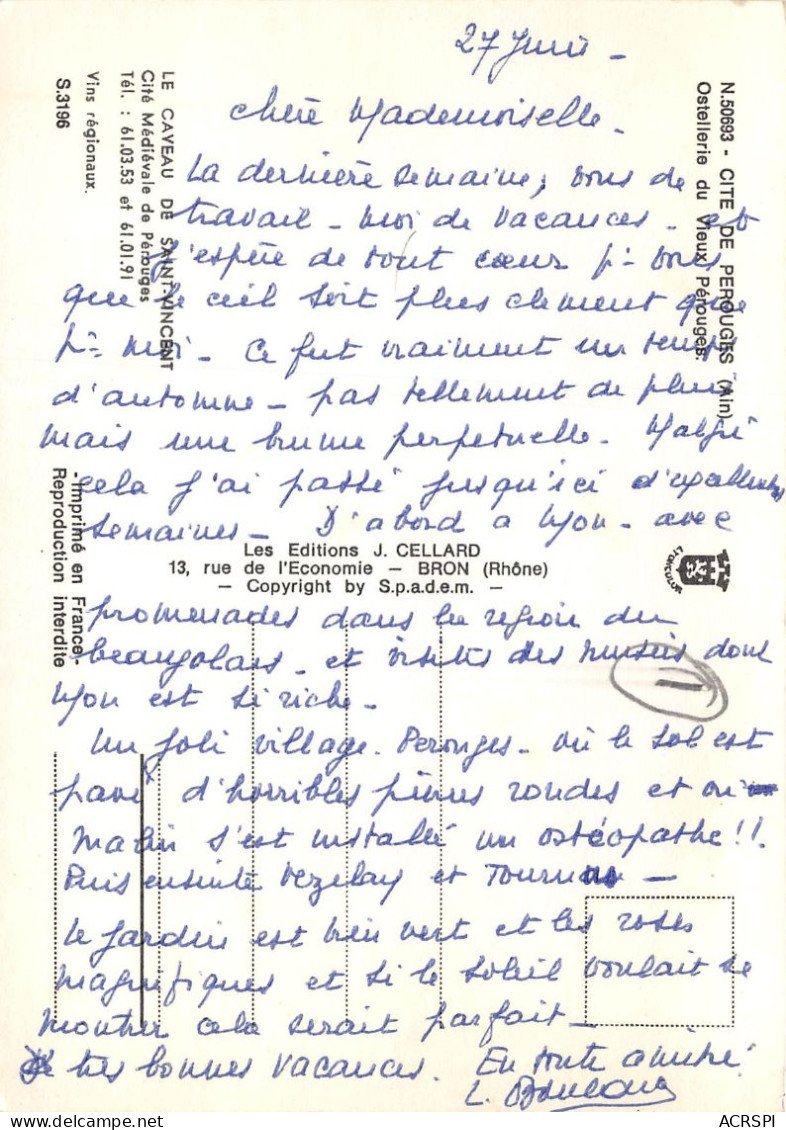 27 Juin -
Chère Mademoiselle.
La dernière semaine, vous de
travail - moi de vacances - et
j'espère de tout cœur pr vous
que le ciel soit plus clement que
pr moi - Ce fut vraiment un temps
d'automne - pas tellement de pluie
mais une brume perpetuelle - Malgré
cela j'ai passé jusqu'ici d'excellentes
semaines - D'abord a Lyon - avec
promenades dans la region du
beaujolais - et visites des musées dont
Lyon est si riche -
Un joli village - Perouges - où le sol est
pavé d'horribles pierres rondes et où
malin s'est installé un ostéopathe !!
Puis ensuite Vezelay et Tournus -
Le jardin est bien vert et les roses
magnifiques et si le soleil voulait se
montrer cela serait parfait -
tres bonnes vacances. En toute amitié
L.
N.50693 - CITE DE PEROUGES (Ain)
Ostellerie du Vieux Pérouges.
LE CAVEAU DE SAINT-VINCENT
Cité Médiévale de Pérouges
Tél. : 61.03.53 et 61.01.91
Vins régionaux.
S.3196
- Imprimé en France -
Reproduction interdite
Les Editions J. CELLARD
13, rue de l'Economie - BRON (Rhône)
- Copyright by S.p.a.d.e.m. -
ACRSPI